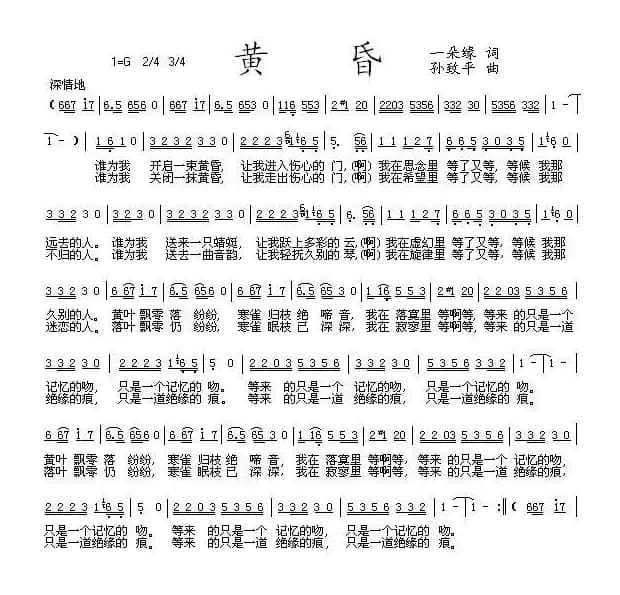 黄 昏
1=G 2/4 3/4
一朵缘 词
孙致平 曲
深情地
( 667 i7 | 6.5 656 0 | 667 i7 | 6.5 653 0 | 116 553 | 2 20 | 2203 5356 | 332 0 | 5356 332 | 1 - |
1 - ) | 1 6 1 0 | 3 3 2 3 0 |
谁为我 开启一束黄昏, 让我进入伤心的 门,(啊) 我在思念里 等了又等, 等候 我那
谁为我 关闭一抹黄昏, 让我走出伤心的 门,(啊) 我在希望里 等了又等, 等候 我那
3 3 2 3 0 | 1 6 1 0 | 3 3 2 3 0 |
远去的人。 谁为我 送来一只蜻蜓, 让我跃上多彩的 云,(啊) 我在虚幻里 等了又等, 等候 我那
不归的人。 谁为我 送去一曲音韵, 让我轻抚久别的 琴,(啊) 我在旋律里 等了又等, 等候 我那
3 3 2 3 0 | 6 67 i 7 | 6.5 65 6 | 6 67 i 7 | 6.5 65 3 0 | 1 16 | 5 5 3 | 2 20 | 2 2 0 3 5 3 5 6 |
久别的人。 黄叶 飘零 落 纷纷, 寒雀 归枝 绝 啼 音, 我在 落寞里 等啊等, 等来 的只是一个
迷恋的人。 落叶 飘零 仍 纷纷, 寒雀 眠枝 已 深 深, 我在 寂寥里 等啊等, 等来 的只是一道
3 3 2 3 0 | 2 2 2 3 | 5 0 | 2 2 0 3 5 3 5 6 | 3 3 2 3 0 | 5 3 5 6 3 3 2 | 1 - | 1 0 |
记忆的吻, 只是一个记忆的 吻。 等来 的只是一个 记忆的吻, 只是一个记忆的 吻。
绝缘的痕, 只是一道绝缘的 痕。 等来 的只是一道 绝缘的痕, 只是一道绝缘的 痕。
6 67 i 7 | 6.5 6560 | 6 67 i 7 | 6.5 653 0 | 1 16 5 5 3 | 2 20 | 2 2 0 3 5 3 5 6 | 3 3 2 3 0 |
黄叶 飘零 落 纷纷, 寒雀 归枝 绝 啼 音, 我在 落寞里 等啊等, 等来 的只是一个 记忆的吻,
落叶 飘零 仍 纷纷, 寒雀 眠枝 已 深深, 我在 寂寥里 等啊等, 等来 的只是一道 绝缘的痕,
5 0 | 2 2 0 3 5 3 5 6 | 3 3 2 0 | 5 3 5 6 3 3 2 | 1 - | 1 - :‖ ( 667 i7
只是一个记忆的 吻。 等来 的只是一个 记忆的吻, 只是一个记忆的 吻。
只是一道绝缘的 痕。 等来 的只是一道 绝缘的痕, 只是一道绝缘的 痕。